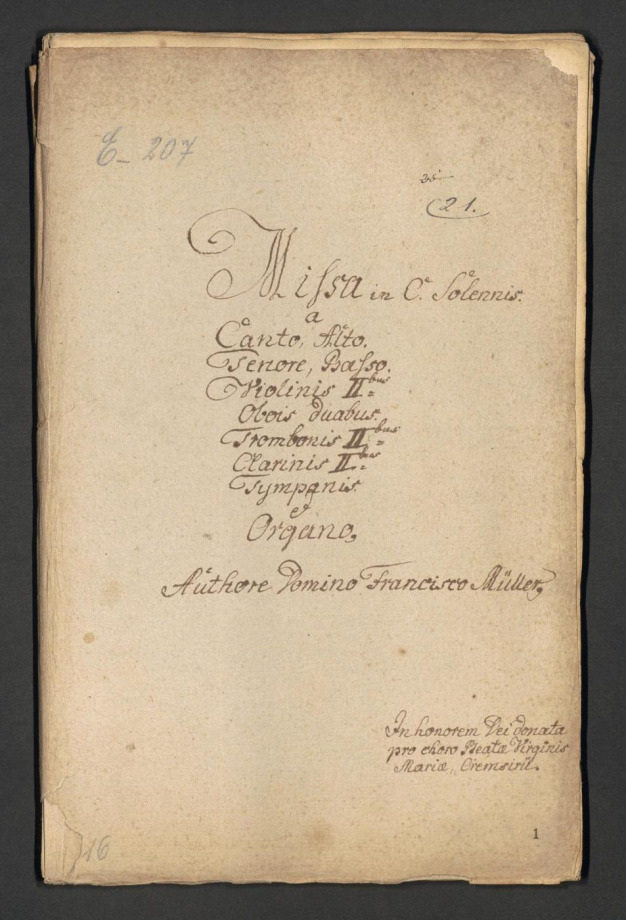 E_ 207
21.
Missa in C. Solennis.
a
Canto, Alto.
Tenore, Basso.
Violinis II bus
Obois duabus.
Trombonis II bus
Clarinis II bus
Tympanis.
et
Organo,
Authore Domino Francisco Müller,
In honorem Dei donata
pro choro Beatæ Virginis
Mariæ, Cremsirii.
16
1